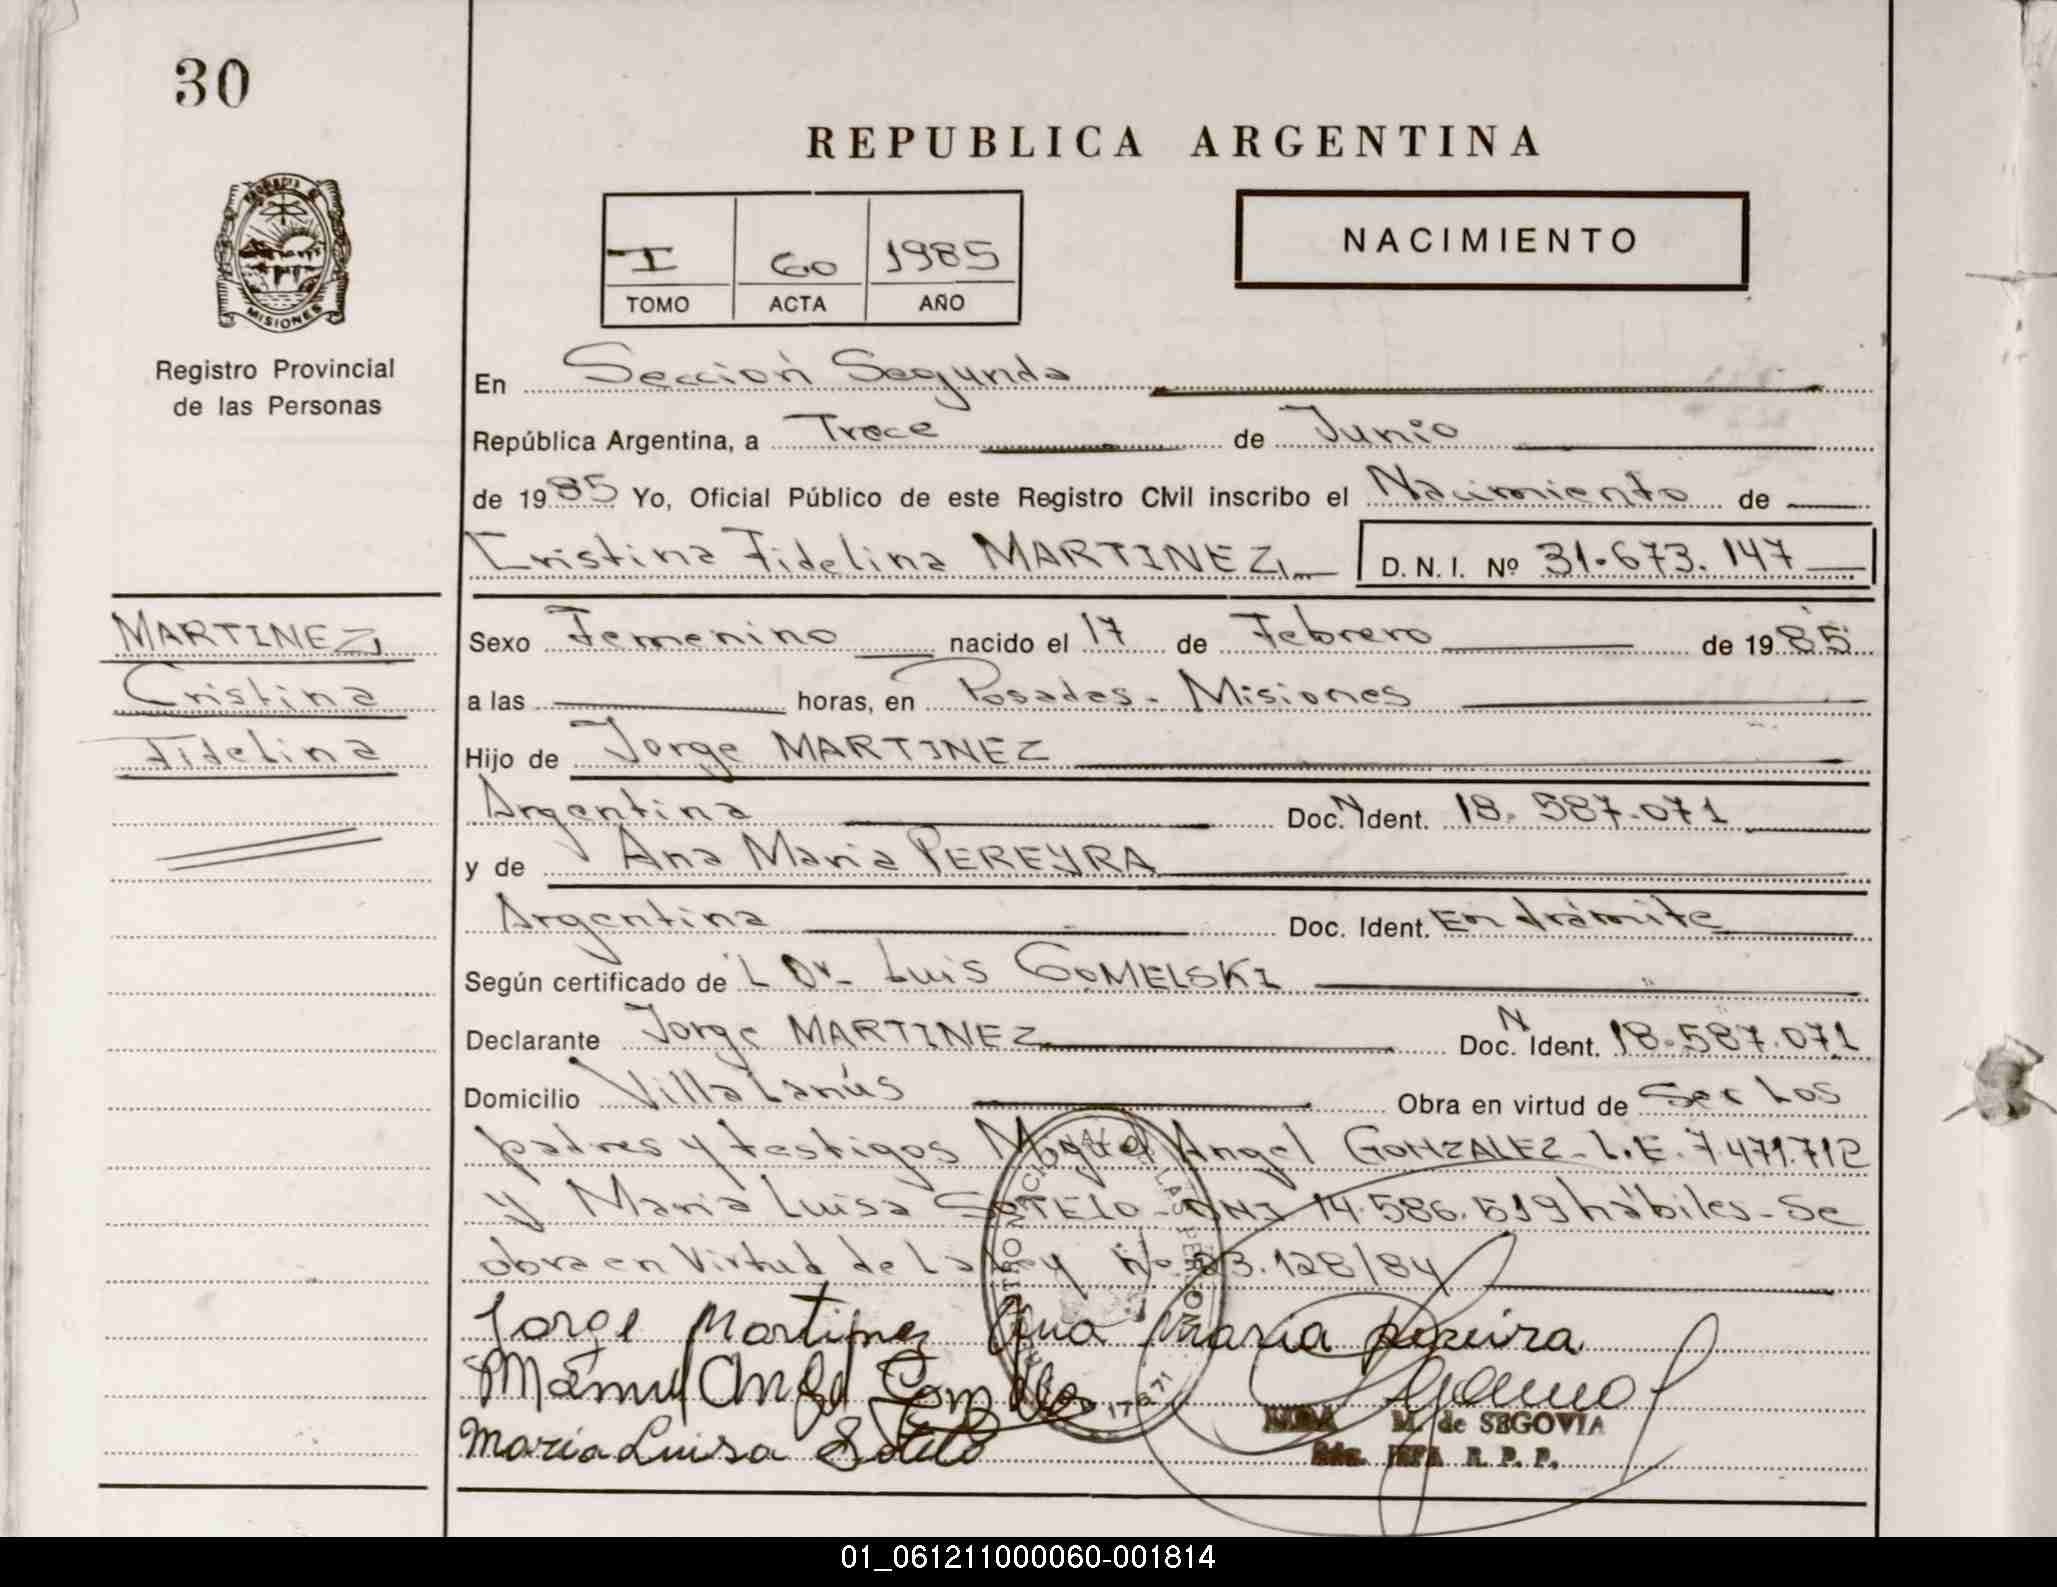 30
REPUBLICA ARGENTINA
I 60 1985
TOMO ACTA AÑO
NACIMIENTO
MISIONES
Registro Provincial
de las Personas
En Sección Segunda
República Argentina, a Trece de Junio
de 1985 Yo, Oficial Público de este Registro Civil inscribo el Nacimiento de
Cristina Fidelina MARTINEZ, D. N. I. Nº 31.673.147
MARTINEZ,
Cristina
Fidelina
Sexo Femenino nacido el 17 de Febrero de 1985
a las horas, en Posadas - Misiones
Hijo de Jorge MARTINEZ
Argentina Doc. N Ident. 18.587.071
y de Ana Maria PEREYRA
Argentina Doc. Ident. En trámite
Según certificado de L Dr. Luis GOMELSKI
Declarante Jorge MARTINEZ Doc. N Ident. 18.587.071
Domicilio Villa Lanús Obra en virtud de Ser Los
padres y testigos Miguel Angel GONZALEZ - L.E. 7.471.712
y Maria Luisa SOTELO - DNI 14.586.519 hábiles - Se
obra en Virtud de La Ley No 23.128/84
Jorge Martinez Ana Maria pereira
Angel
Maria Luisa Sotelo
M. de SEGOVIA
JEFA R. P. P.
01_061211000060-001814